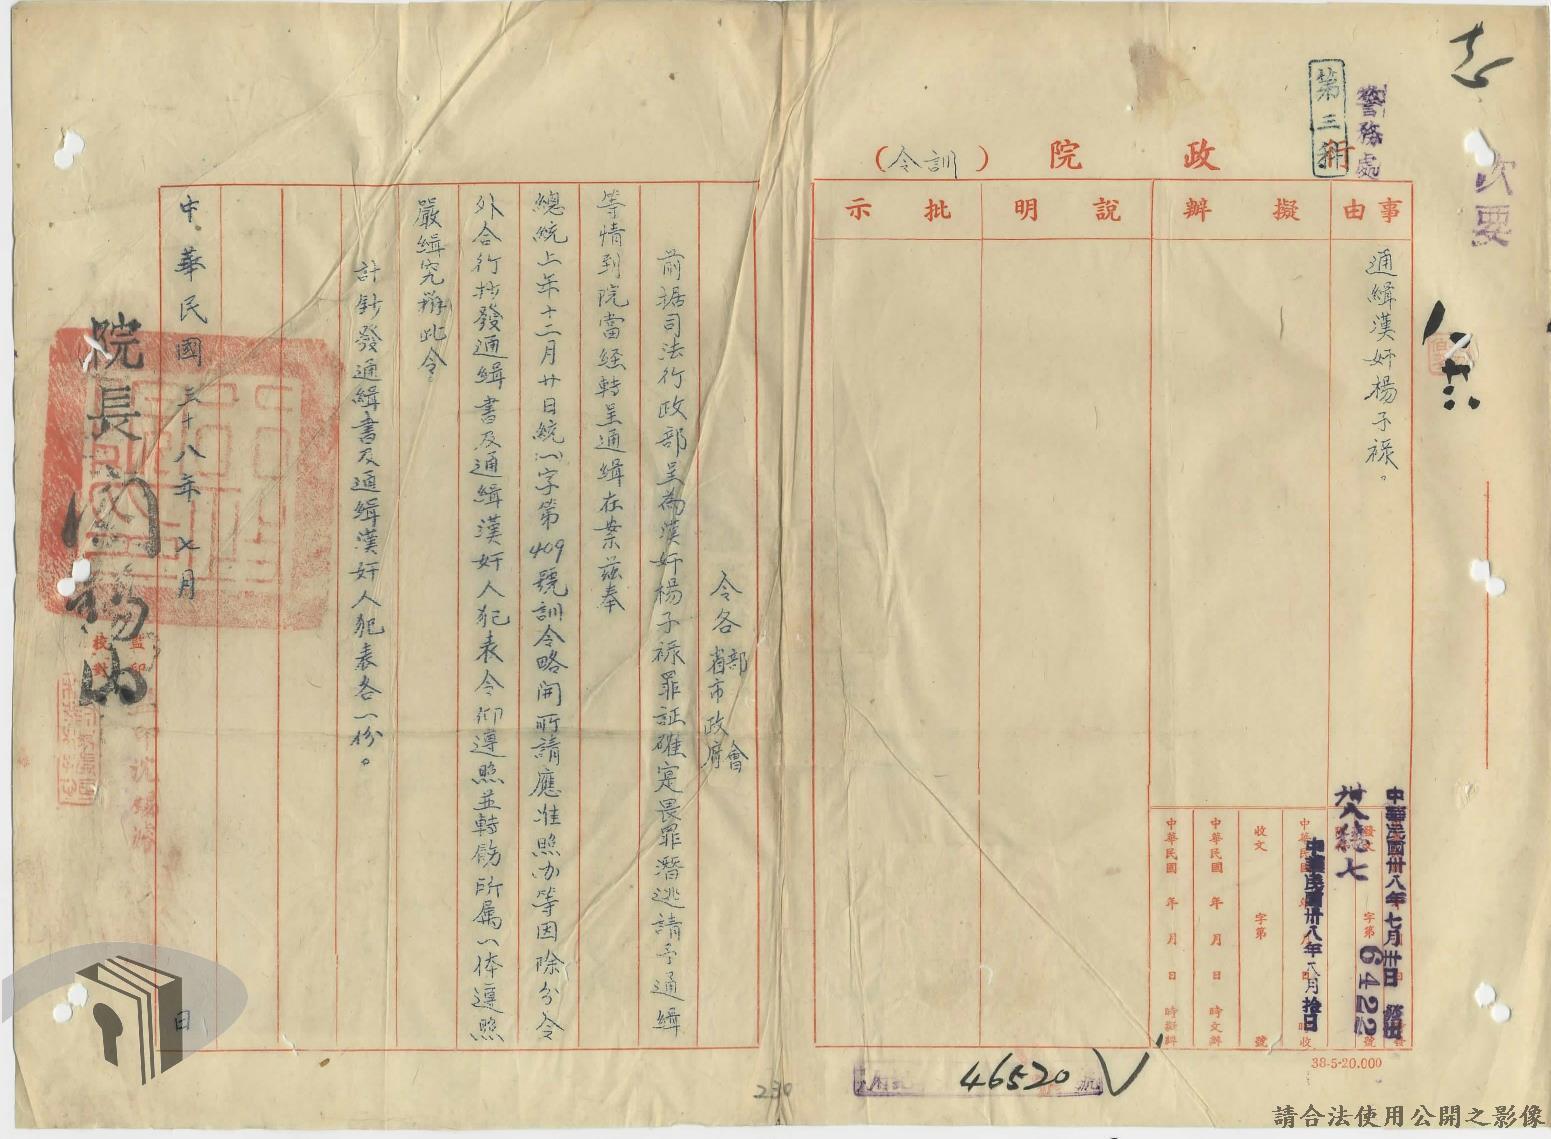 次要
警務處
第三科
行政院
(訓令)
事由
擬辦
說明
批示
通緝漢奸楊子祿。
中華民國卅八年七月
卅八穗七
字第6422號
中華民國卅八年八月拾日收
收文 字第 號
中華民國 年 月 日 時交辦
中華民國 年 月 日 時擬辦
38-5-20.000
46520
230
令各部會
省市政府
前据司法行政部呈為漢奸楊子祿罪証確定畏罪潛逃請予通緝
等情到院當經轉呈通緝在案茲奉
總統上年十二月廿日統㈠字第409號訓令略開所請應准照办等因除分令
外合行抄發通緝書及通緝漢奸人犯表令仰遵照並轉飭所属一体遵照
嚴緝究辦此令
計鈔發通緝書及通緝漢奸人犯表各一份。
中華民國三十八年七月 日
院長閻錫山
監印
校對
請合法使用公開之影像